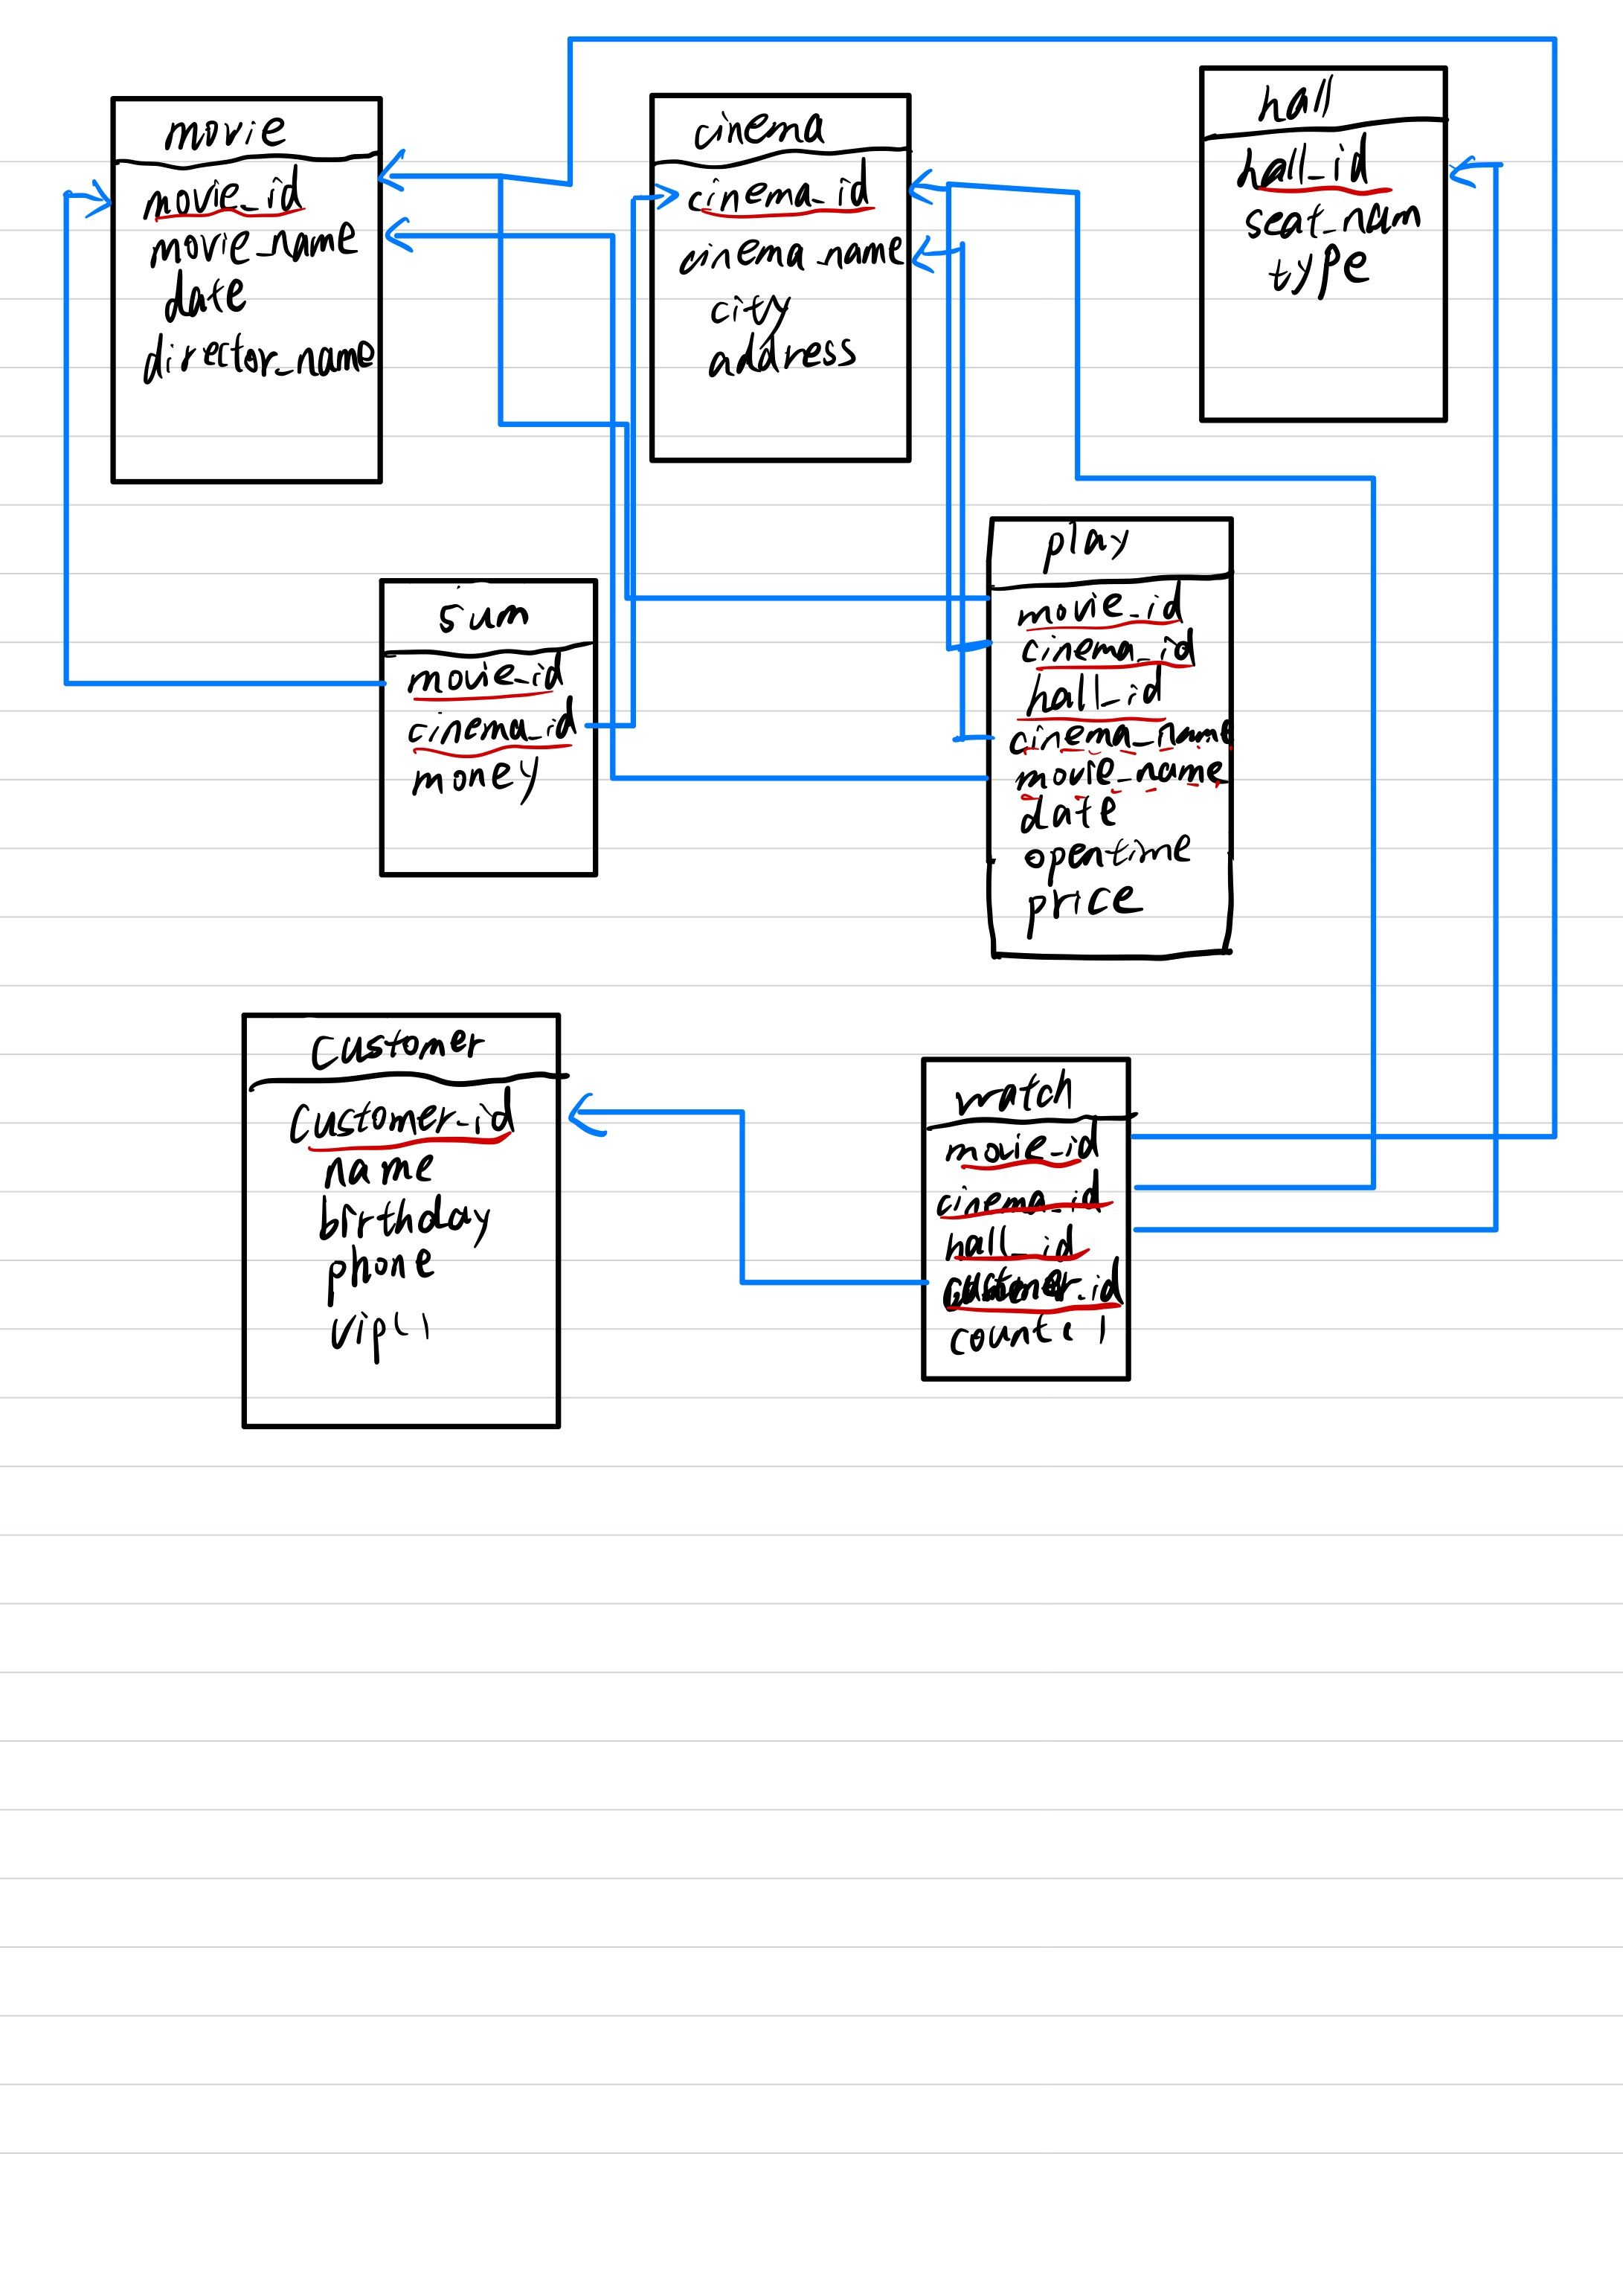 movie
movie_id
movie_name
date
director_name
cinema
cinema_id
cinema_name
city
address
hall
hall_id
seat_num
type
sum
movie_id
cinema_id
money
play
movie_id
cinema_id
hall_id
cinema_name
movie_name
date
opentime
price
customer
customer_id
name
birthday
phone
vip()
watch
movie_id
cinema_id
hall_id
customer_id
count()